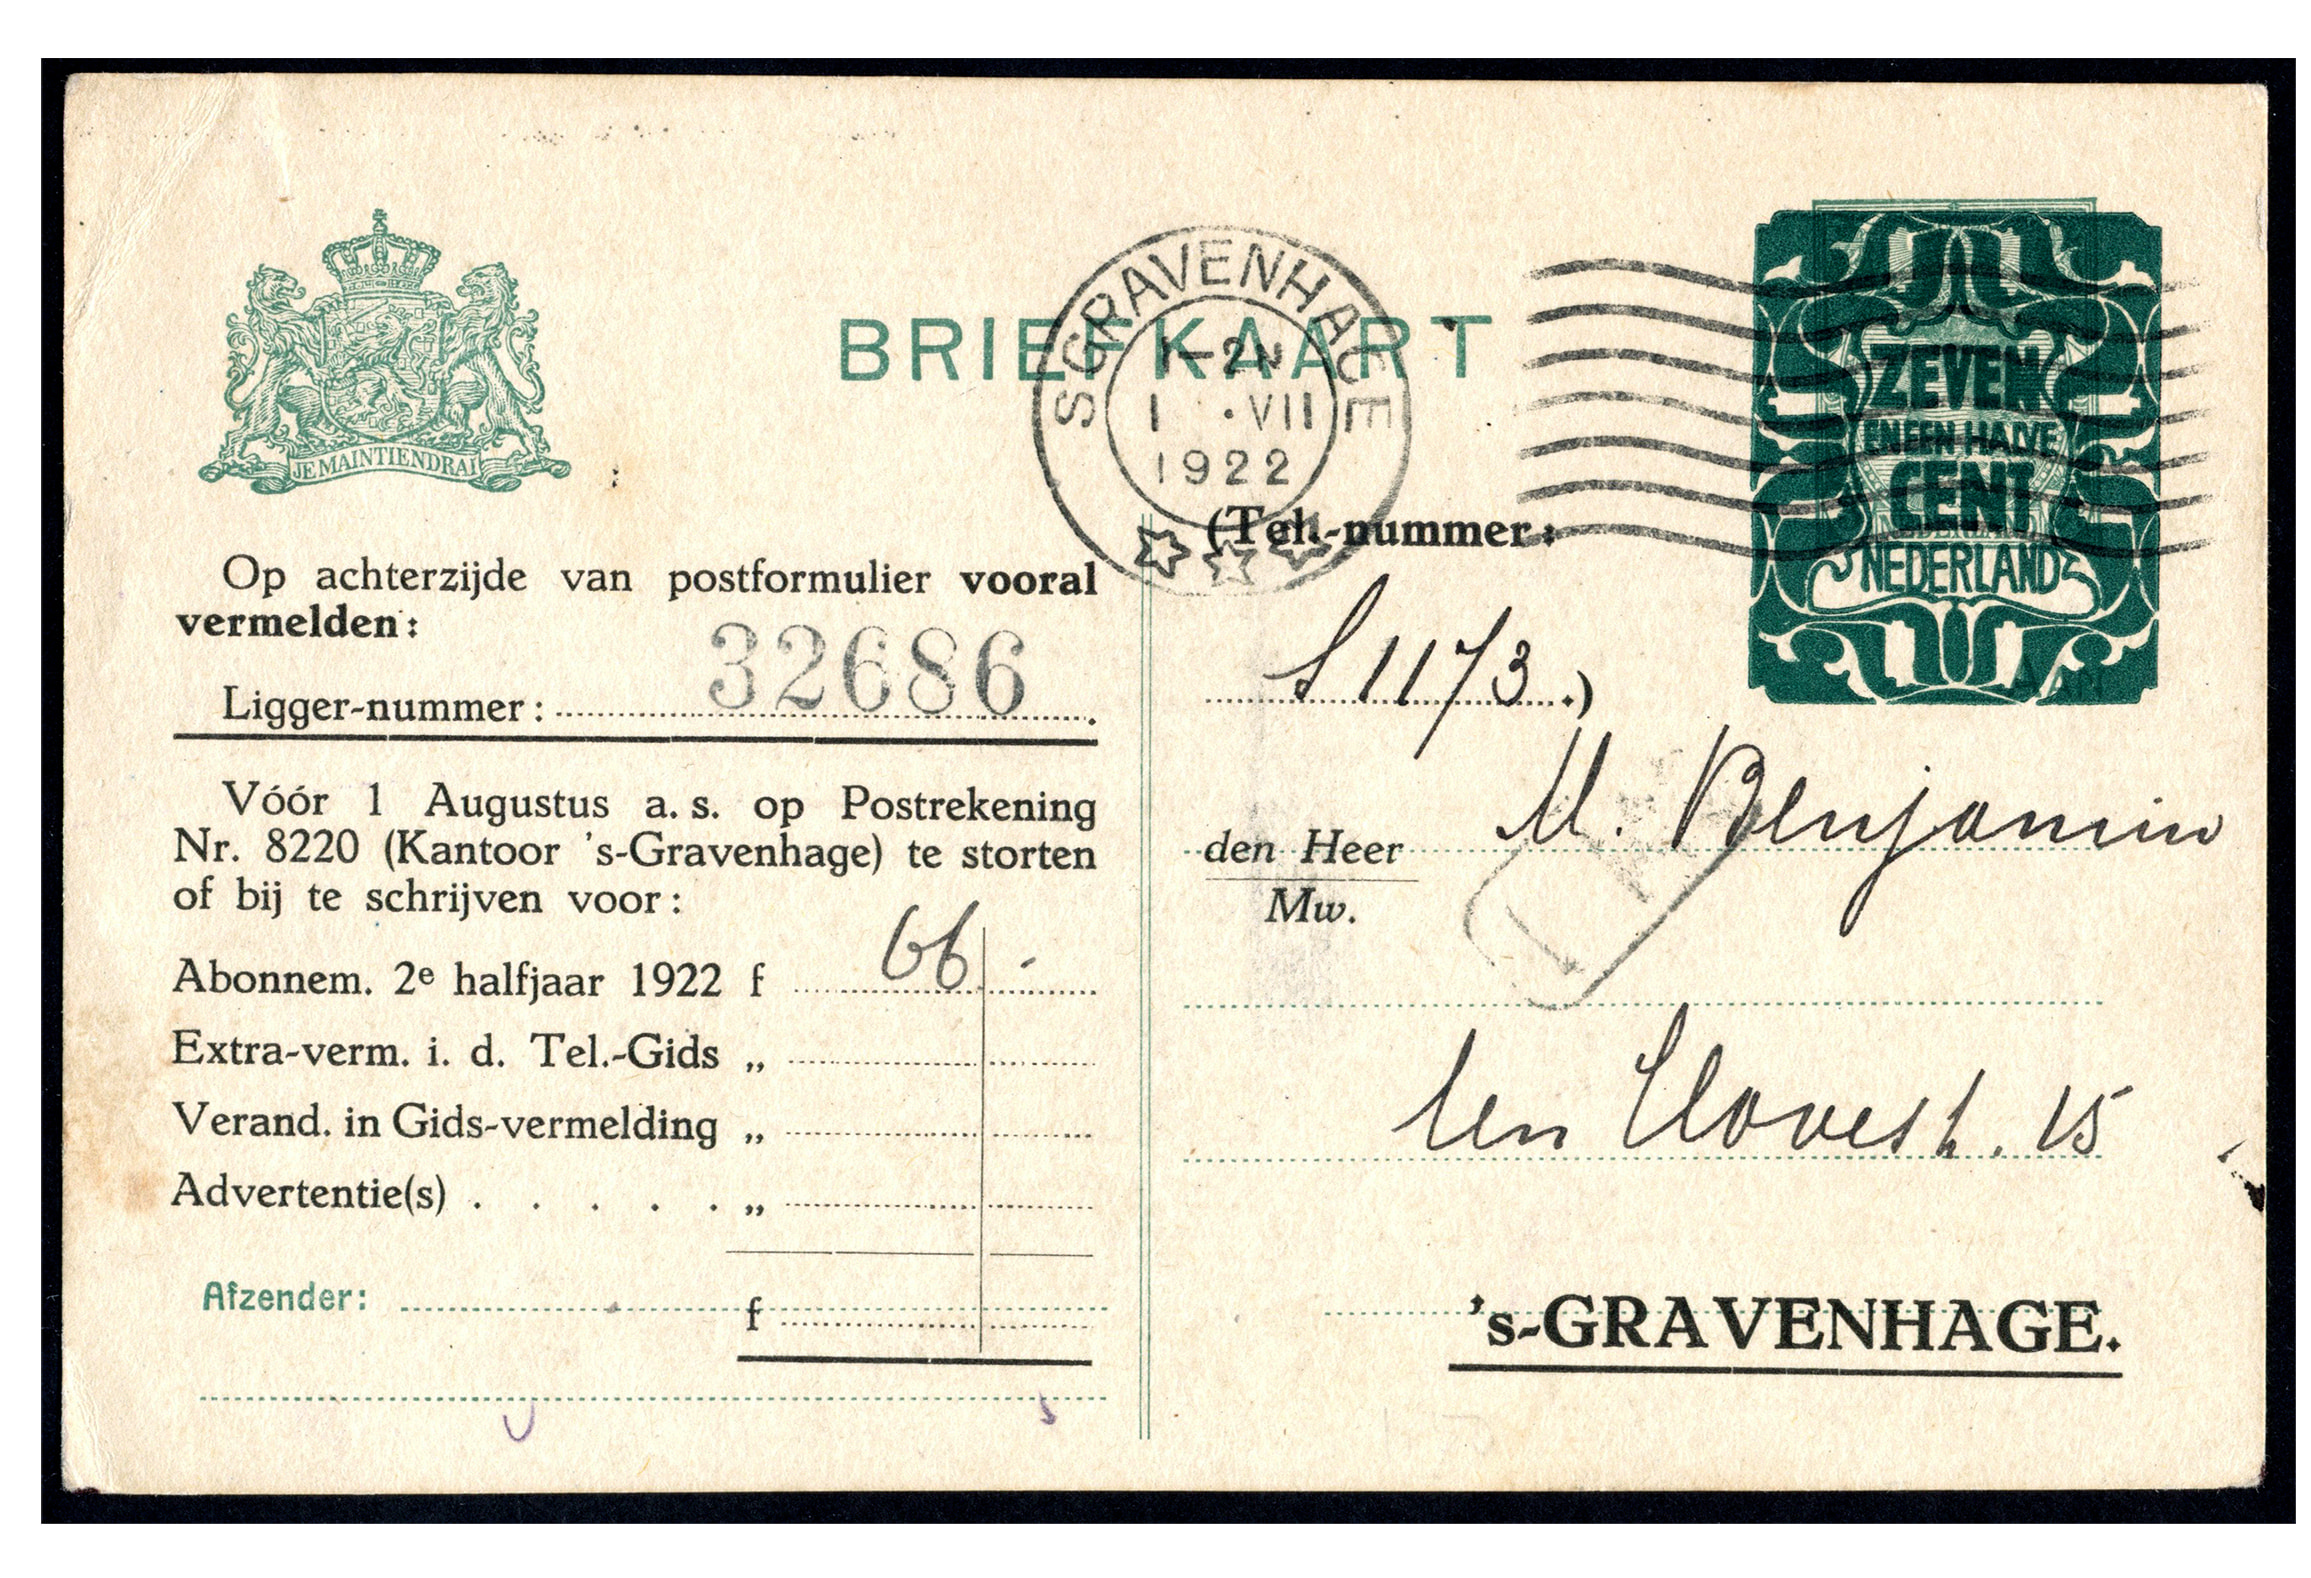 JE MAINTIENDRAI
BRIEFKAART
SGRAVENHAGE
1-2N
1 .VII
1922
ZEVEN
EN EEN HALVE
CENT
NEDERLAND
Op achterzijde van postformulier vooral
vermelden:
Ligger-nummer: 32686.
Vóór 1 Augustus a. s. op Postrekening
Nr. 8220 (Kantoor 's-Gravenhage) te storten
of bij te schrijven voor:
Abonnem. 2e halfjaar 1922 f 66 -
Extra-verm. i. d. Tel.-Gids „
Verand. in Gids-vermelding „
Advertentie(s) . . . . . „
Afzender:
f
(Tel.-nummer:
S 1173.)
AAN
den Heer M. Benjamin
Mw.
ten Hovest. 15
's-GRAVENHAGE.